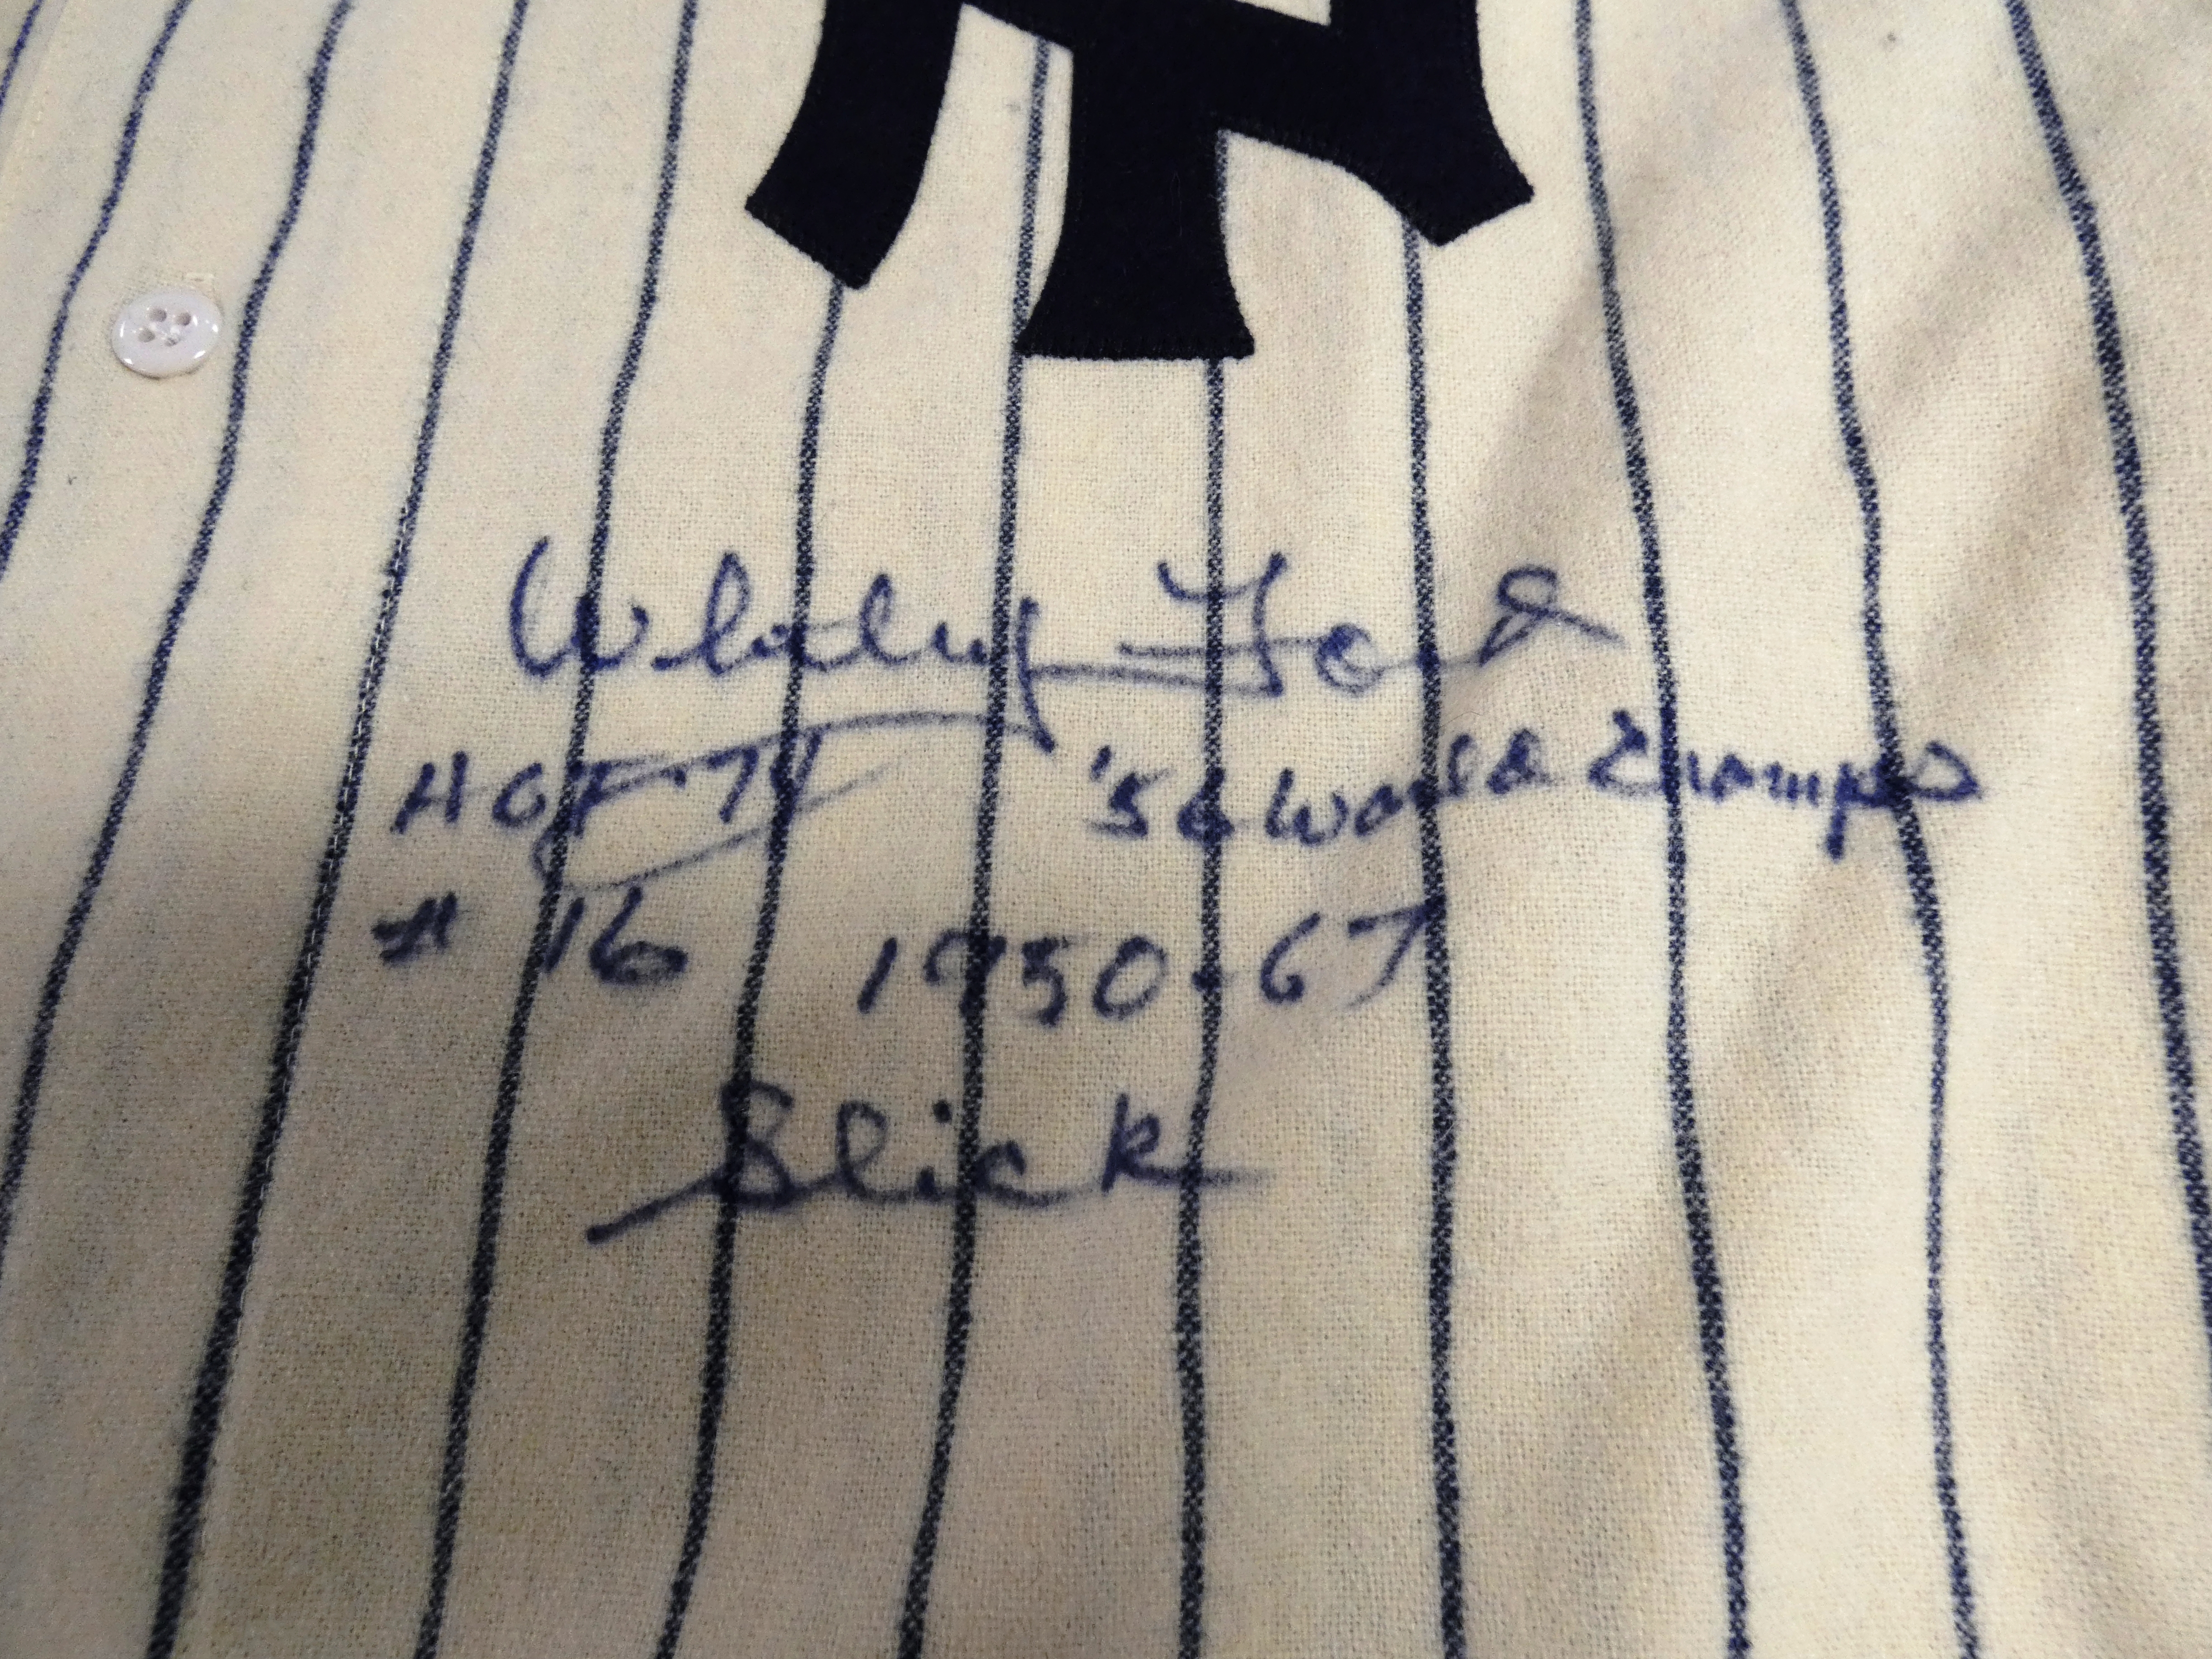 NY
Whitey Ford
HOF-74 '56 World Champs
# 16 1950-67
Slick